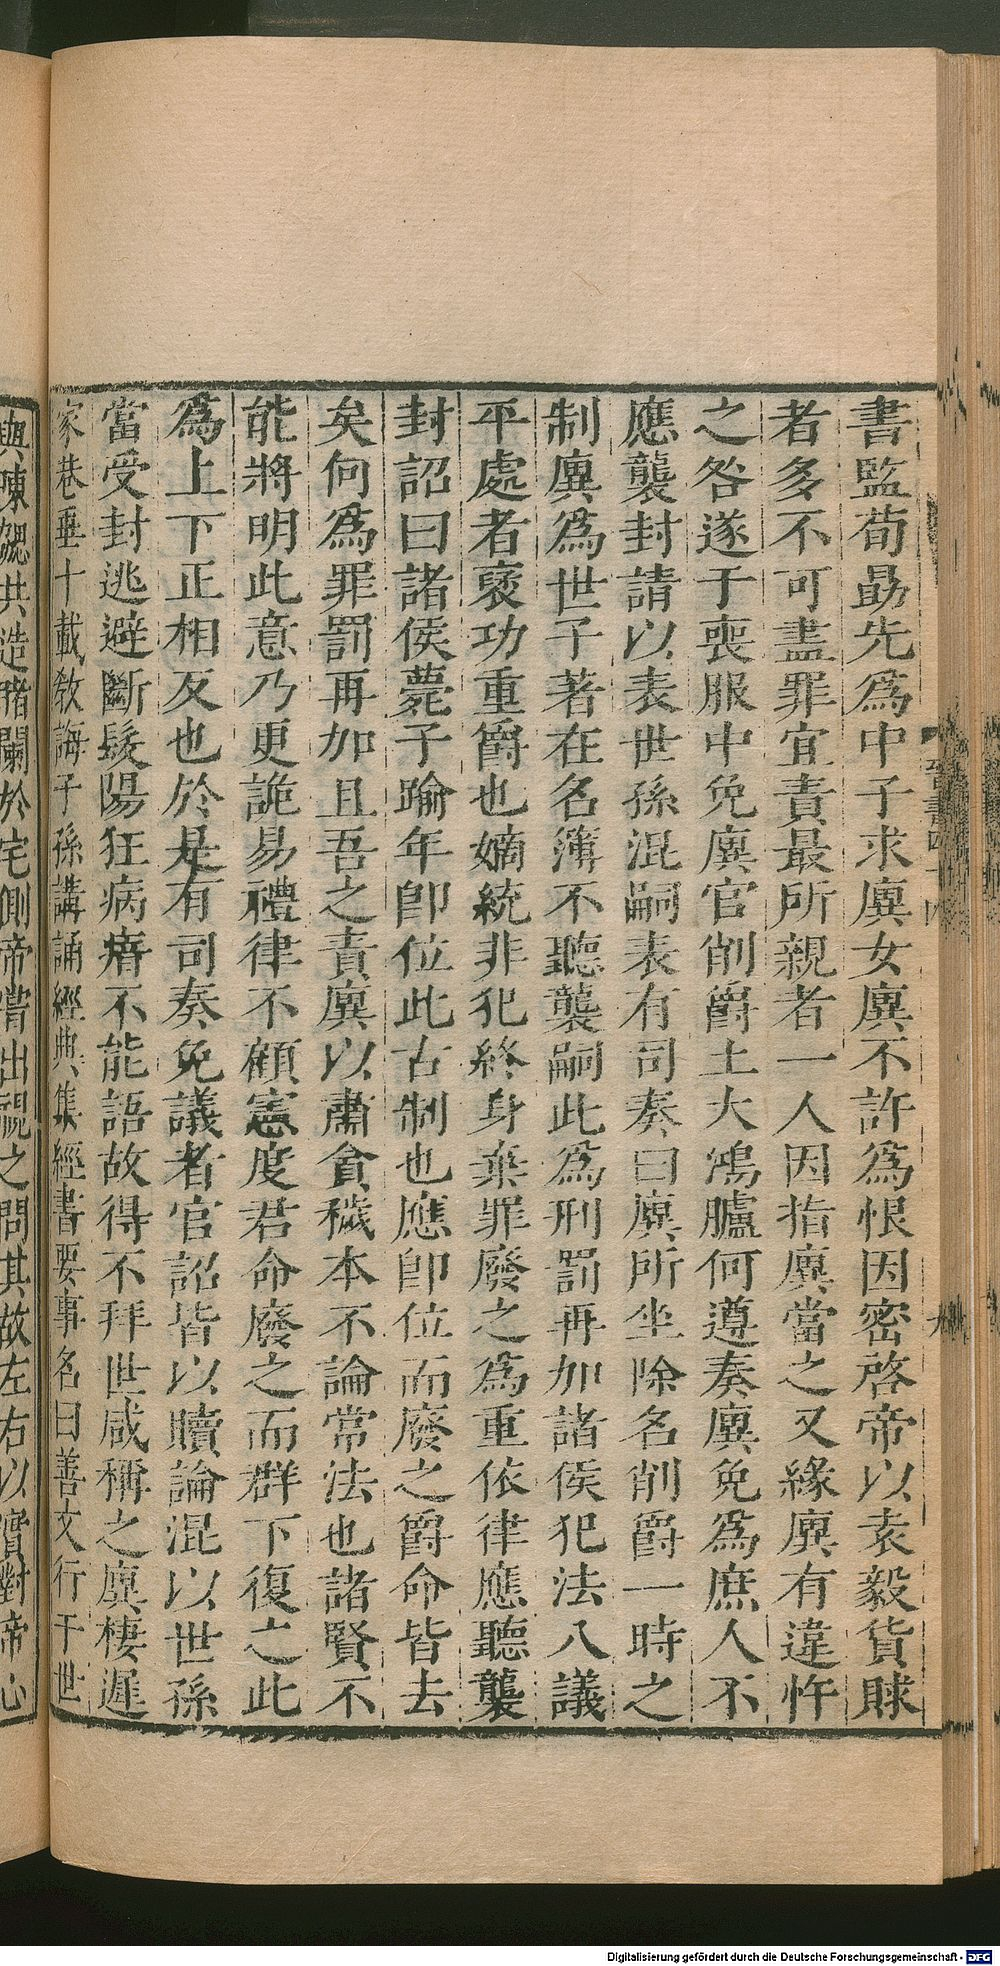 書監荀勗先爲中子求廙女廙不許爲恨因密啓帝以袁毅貨賕
者多不可盡罪宜責最所親者一人因指廙當之又緣廙有違忤
之咎遂于喪服中免廙官削爵土大鴻臚何遵奏廙免爲庶人不
應襲封請以表世孫混嗣表有司奏曰廙所坐除名削爵一時之
制廙爲世子著在名簿不聽襲嗣此爲刑罰再加諸侯犯法八議
平處者襃功重爵也嫡統非犯終身棄罪廢之爲重依律應聽襲
封詔曰諸侯薨子踰年卽位此古制也應卽位而廢之爵命皆去
矣何爲罪罰再加且吾之責廙以肅貪穢本不論常法也諸賢不
能將明此意乃更詭易禮律不顧憲度君命廢之而群下復之此
爲上下正相反也於是有司奏免議者官詔皆以贖論混以世孫
當受封逃避斷髮陽狂病瘖不能語故得不拜世咸稱之廙棲遲
家巷垂十載敎誨子孫講誦經典集經書要事名曰善文行于世
與陳勰共造猪闌於宅側帝嘗出視之問其故左右以實對帝心
晉書四十四
九
Digitalisierung gefördert durch die Deutsche Forschungsgemeinschaft - DFG